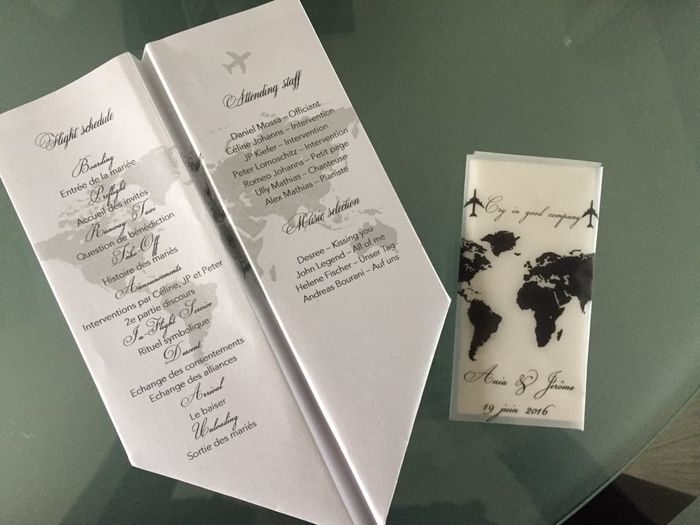 Flight schedule
Boarding
Entrée de la mariée
Preflight
Accueil des invités
Runway Taxi
Question de bénédiction
Take Off
Histoire des mariés
Announcements
Interventions par Céline, JP et Peter
2e partie discours
In-Flight Service
Rituel symbolique
Descent
Echange des consentements
Echange des alliances
Arrival
Le baiser
Unloading
Sortie des mariés
Attending staff
Daniel Mossa – Officiant
Céline Johanns – Intervention
JP Kiefer – Intervention
Peter Lomoschitz – Intervention
Romeo Johanns – Petit page
Ully Mathias – Chanteuse
Alex Mathias – Pianiste
Music selection
Desree – Kissing you
John Legend – All of me
Helene Fischer – Unser Tag
Andreas Bourani – Auf uns
Cry in good company
Ania & Jérôme
19 juin 2016